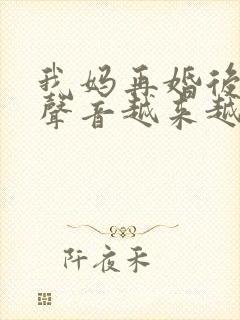 我妈再婚後
聲音越来越
阡夜采